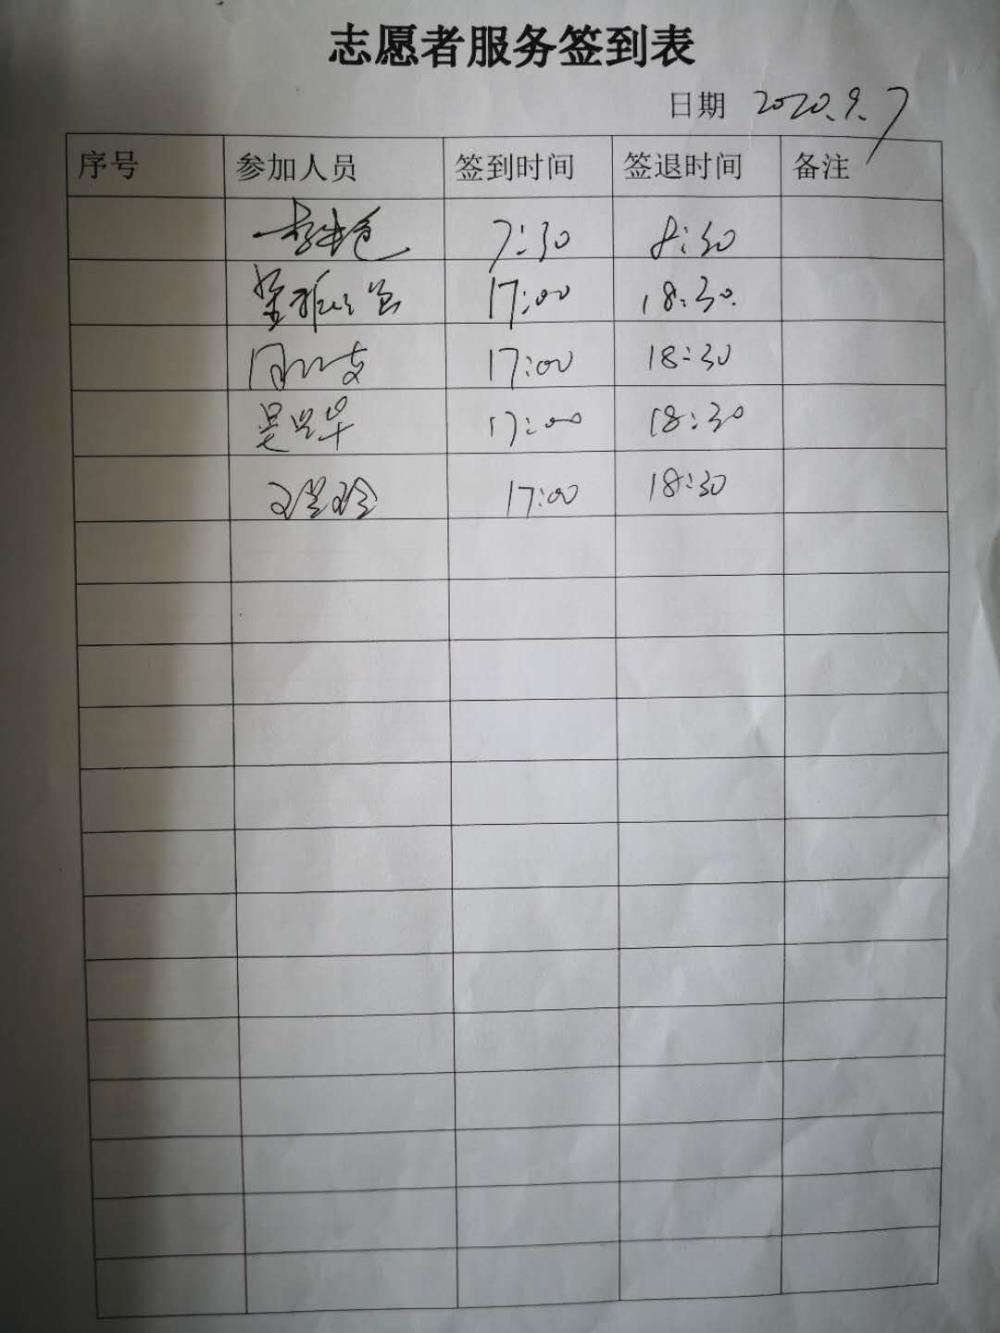 志愿者服务签到表
日期 2020.9.7
序号 参加人员 签到时间 签退时间 备注
7:30 8:30
17:00 18:30.
17:00 18:30
17:00 18:30
17:00 18:30